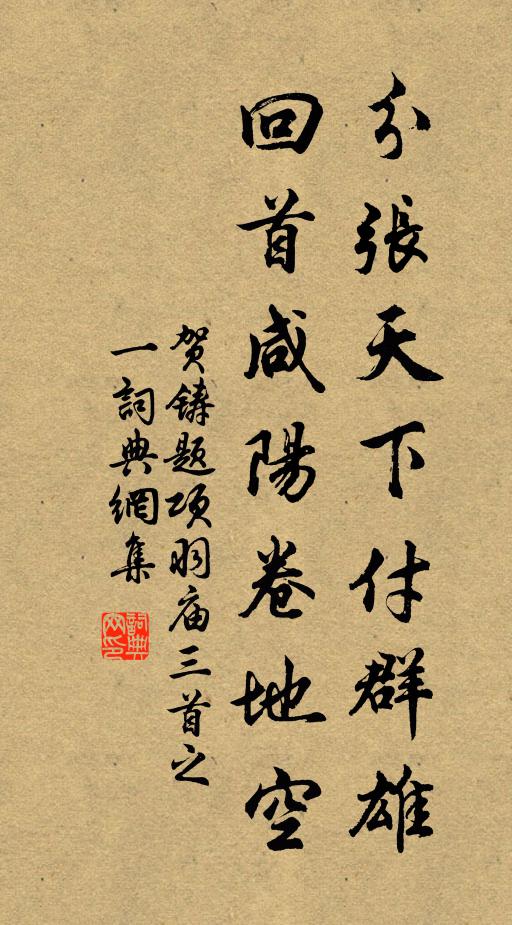 分張天下付群雄
回首咸陽卷地空
贺鑄题项羽庙三首之
一詞典網集
詞典網印